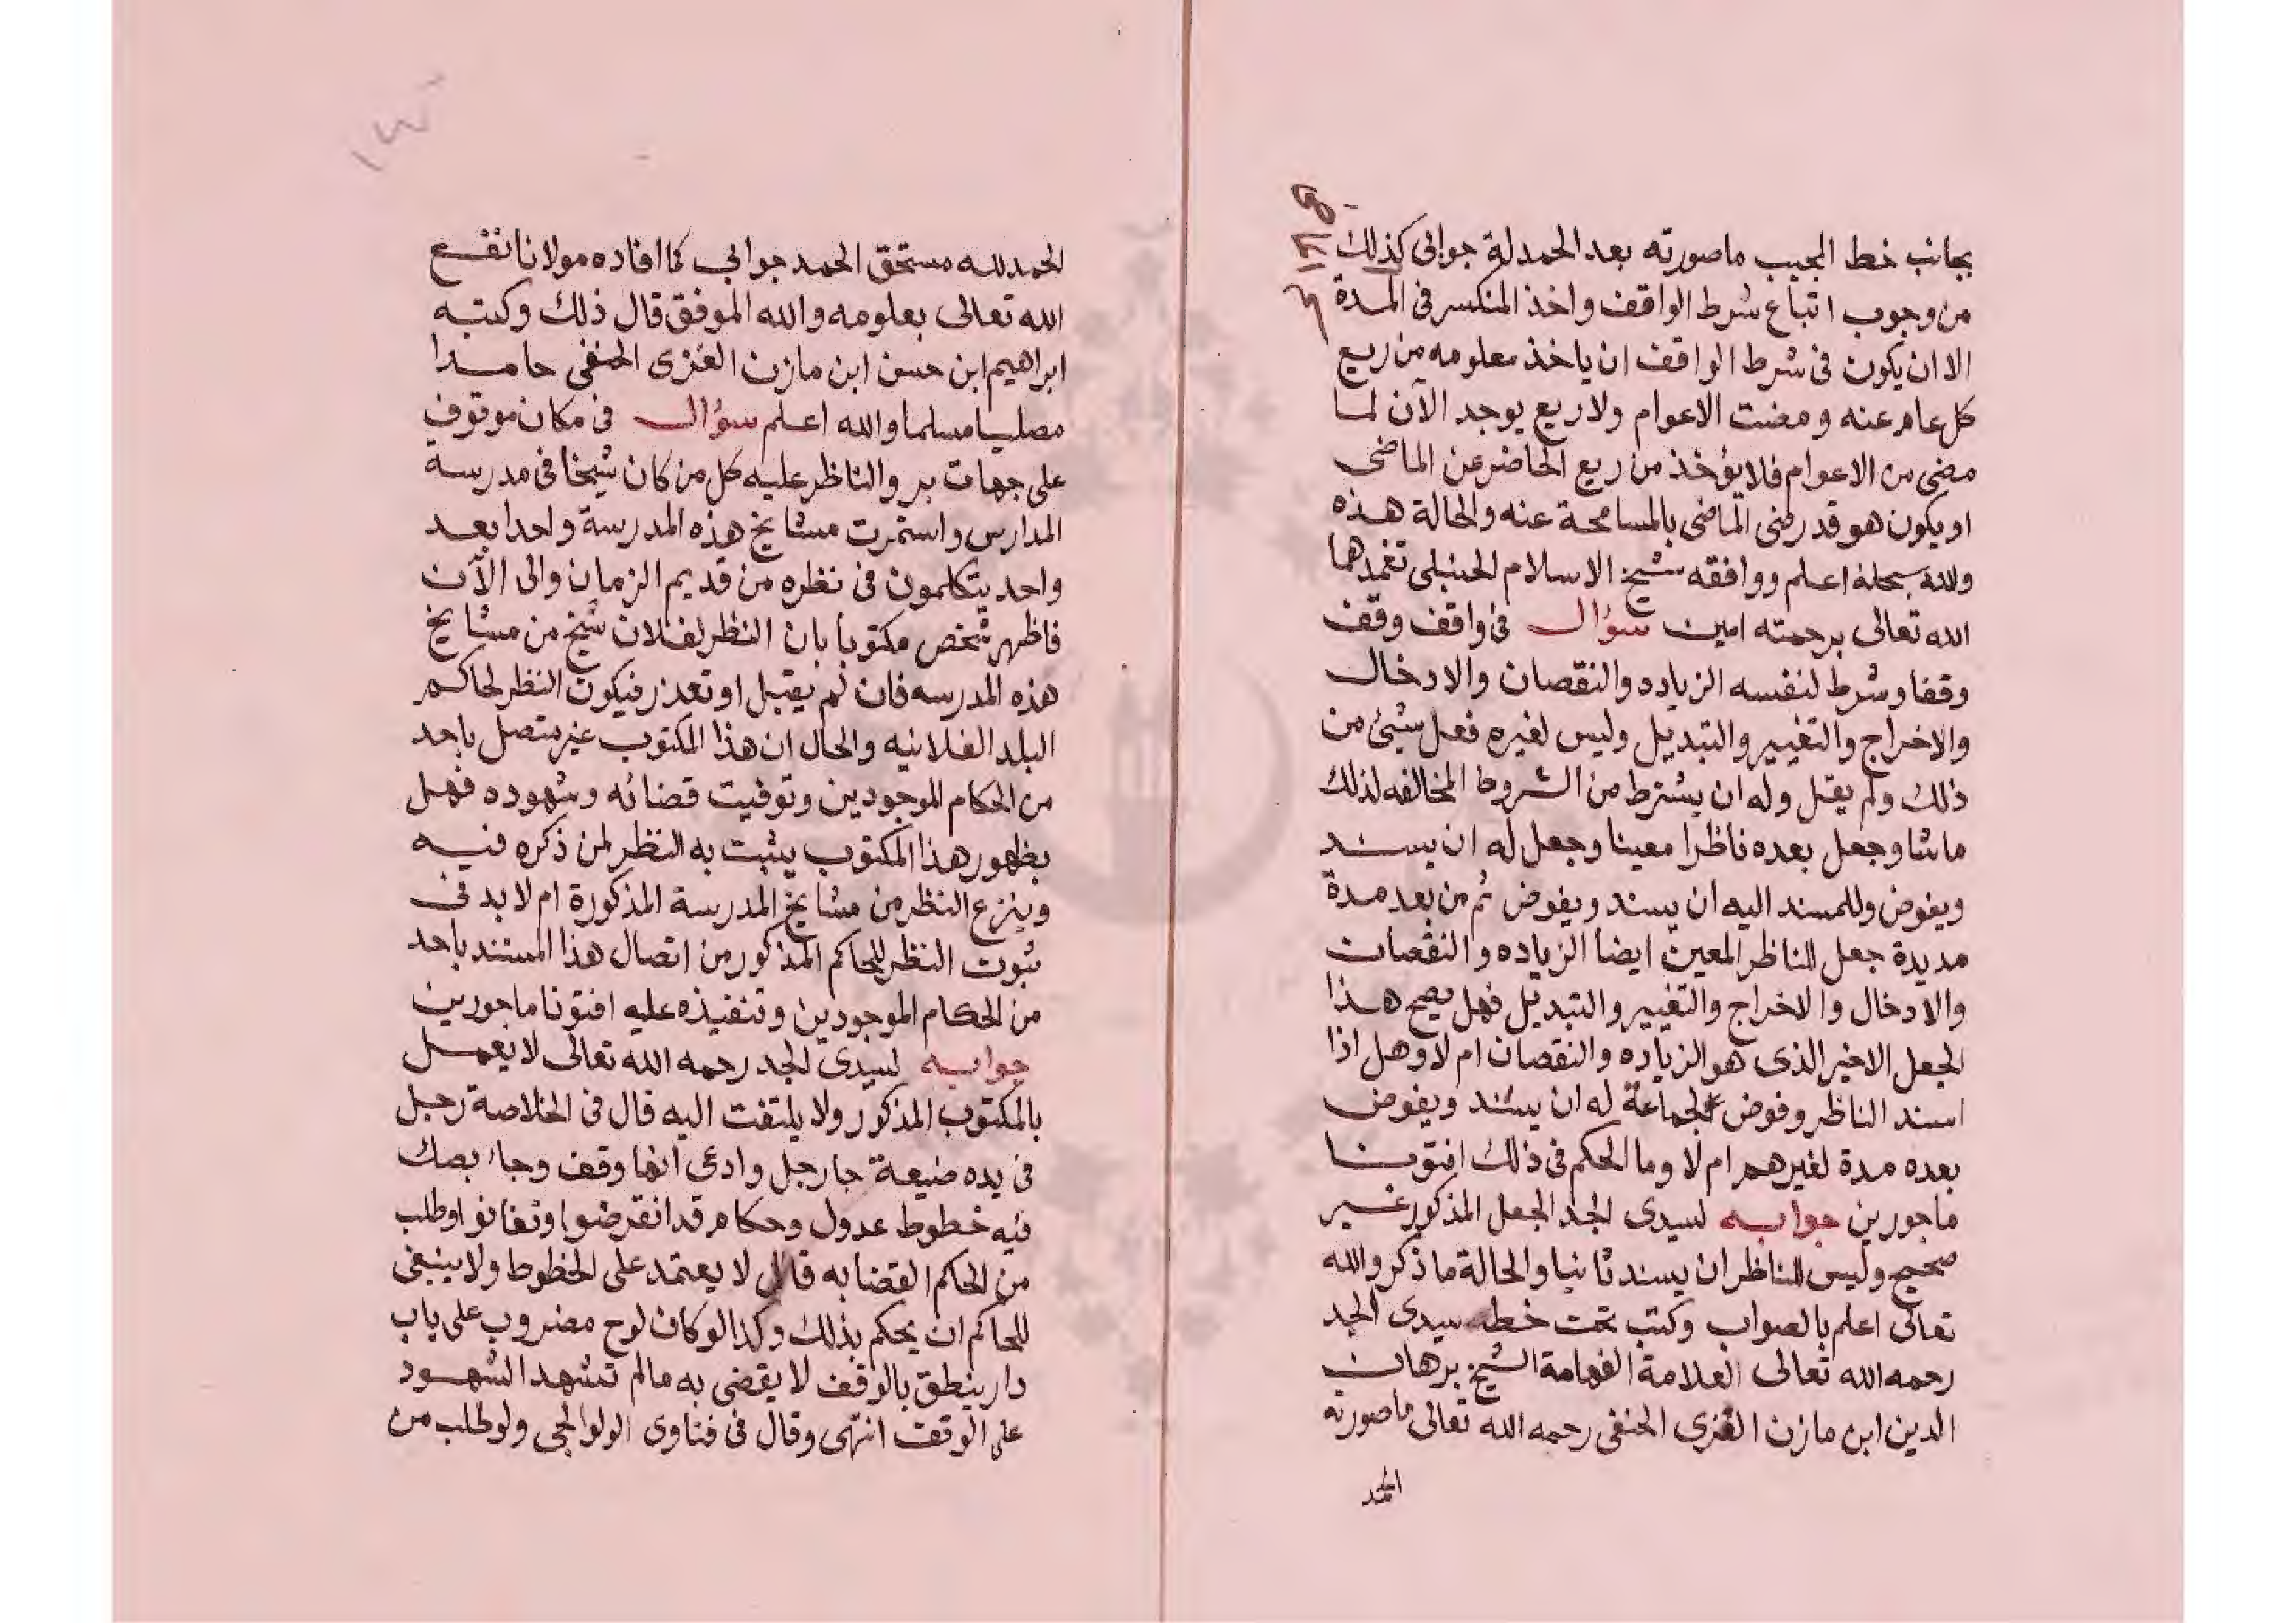 بجانب خط المجيب ماصورته بعد الحمدلة جوابى كذلك
من وجوب اتباع شرط الواقف واخذ المنكسر فى المدة
الا ان يكون فى شرط الواقف ان ياخذ معلومه من ريع
كل عام عنه ومضت الاعوام ولا ريع يوجد الآن لما
مضى من الاعوام فلا يؤخذ من ريع الحاضر عن الماضى
او يكون هو قد رضى الماضى بالمسامحة عنه والحالة هذه
والله سبحانه اعلم ووافقه شيخ الاسلام الحنبلى تغمدهما
الله تعالى برحمته امين سؤال فى واقف وقف
وقفا وشرط لنفسه الزياده والنقصان والادخال
والاخراج والتغيير والتبديل وليس لغيره فعل شيئ من
ذلك ولم يقل وله ان يشترط من الشروط المخالفه لذلك
ماشا وجعل بعده ناظرا معينا وجعل له ان يسند
ويفوض وللمسند اليه ان يسند ويفوض ثم من بعد مدة
مديدة جعل للناظر المعين ايضا الزياده والنقصان
والادخال والاخراج والتغيير والتبديل فهل يصح هذا
الجعل الاخير الذى هو الزياده والنقصان ام لا وهل اذا
اسند الناظر وفوض لجماعة له ان يسند ويفوض
بعده مدة لغيرهم ام لا وما الحكم فى ذلك افتونا
ماجورين جوابه لسيدى الجد الجعل المذكور غير
صحيح وليس للناظر ان يسند ثانيا والحالة ماذكر والله
تعالى اعلم بالصواب وكتب تحت خطه سيدى الجد
رحمه الله تعالى العلامة الفهامة الشيخ برهان
الدين ابن مازن الغزى الحنفى رحمه الله تعالى ماصورته
الحمد
الحمد لله مستحق الحمد جوابي كما افاده مولانا نفع
الله تعالى بعلومه والله الموفق قال ذلك وكتبه
ابراهيم ابن حسن ابن مازن الغزى الحنفى حامدا
مصليا مسلما والله اعلم سؤال فى مكان موقوف
على جهات بر والناظر عليه كل من كان شيخا فى مدرسة
المدارس واستمرت مشايخ هذه المدرسة واحدا بعد
واحد يتكلمون فى نظره من قديم الزمان والى الآن
فاظهر شخص مكتوبا بان النظر لفلان شيخ من مشايخ
هذه المدرسه فان لم يقبل او تعذر فيكون النظر لحاكم
البلد الفلانيه والحال ان هذا المكتوب غير متصل باحد
من الحكام الموجودين وتوفيت قضائه وشهوده فهل
بظهور هذا المكتوب يثبت به النظر لمن ذكره فيه
وينزع النظر من مشايخ المدرسة المذكورة ام لا بد فى
ثبوت النظر للحاكم المذكور من اتصال هذا المستند باحد
من الحكام الموجودين وتنفيذه عليه افتونا ماجورين
جوابه لسيدى الجد رحمه الله تعالى لا يعمل
بالمكتوب المذكور ولا يلتفت اليه قال فى الخلاصة رجل
فى يده ضيعة جا رجل وادعى انها وقف وجاء بصك
فيه خطوط عدول وحكام قد انقرضوا وتفانوا وطلب
من الحاكم القضا به قال لا يعتمد على الخطوط ولا ينبغى
للحاكم ان يحكم بذلك وكذا لو كان لوح مضروب على باب
دار ينطق بالوقف لا يقضى به مالم تشهد الشهود
على الوقف انتهى وقال فى فتاوى الولوالجى ولو طلب من